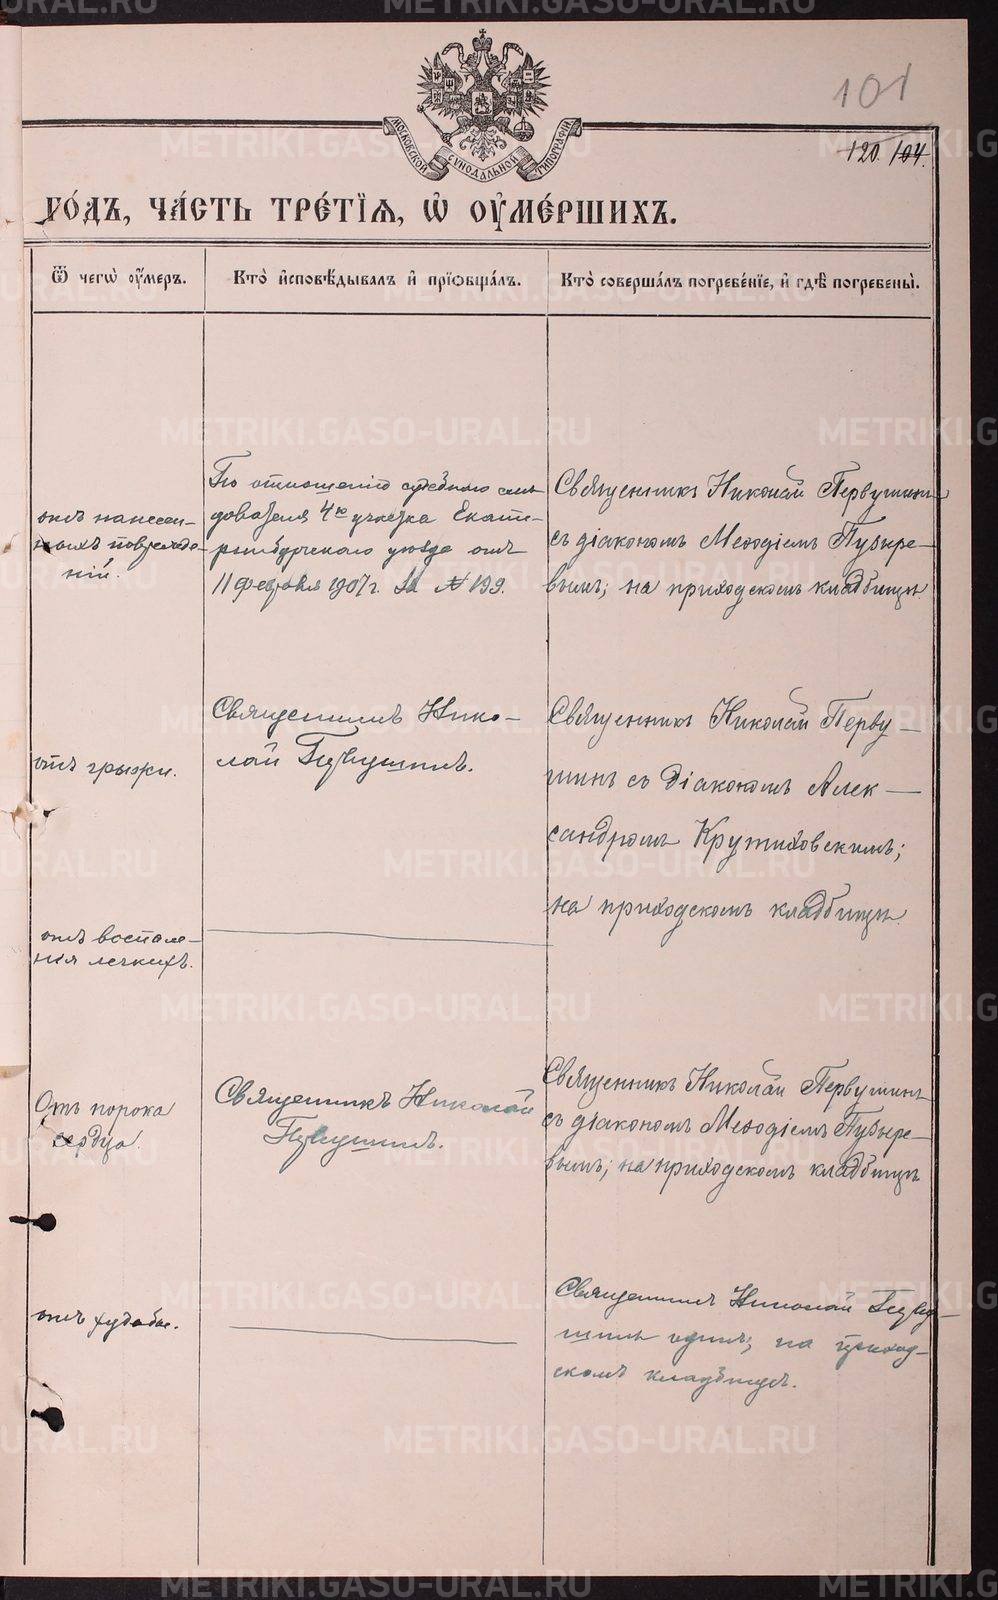 101
МОСКОВСКОЙ СѴНОДАЛЬНОЙ ТИПОГРАФІИ
120. 104.
ГО́ДЪ, ЧА́СТЬ ТРЕ́ТІѦ, Ѡ҆ ОУ҆МЕ́РШИХЪ.
Ѿ чегѡ̀ оу҆́меръ.
Кто̀ и҆сповѣ́дывалъ и҆ прїѡбща́лъ.
Кто̀ соверша́лъ погребе́нїе, и҆ гдѣ̀ погребены̀.
отъ нанесен-
ныхъ поврежде-
ній.
По отношенію судебнаго слѣ
дователя 4го участка Екате-
ринбургскаго уѣзда отъ
11 февраля 1907 г. за № 199.
Священникъ Николай Первушинъ
съ діакономъ Меѳодіемъ Пузыре-
вымъ; на приходскомъ кладбищѣ
отъ грыжи.
Священникъ Нико-
лай Первушинъ.
Священникъ Николай Перву-
шинъ съ діакономъ Алек-
сандромъ Крутиховскимъ;
на приходскомъ кладбищѣ
отъ воспале-
нія легкихъ.
Отъ порока
сердца.
Священникъ Николай
Первушинъ.
Священникъ Николай Первушинъ
съ діакономъ Меѳодіемъ Пузыре-
вымъ; на приходскомъ кладбищѣ
отъ худобы.
Священникъ Николай Перву-
шинъ одинъ; на приход-
скомъ кладбищѣ.
METRIKI.GASO-URAL.RU